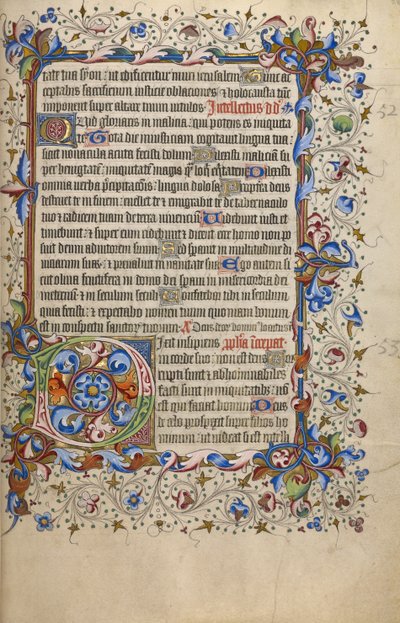 tate tua syon: ut edificentur muri ierusalem Tunc ac
ceptabis sacrificium iusticie oblaciones & holocausta tunc
imponent super altare tuum vitulos Intellectus dd
Quid gloriaris in malicia: qui potens es iniquita
te Tota die iniusticiam cogitauit lingua tua:
sicut nouacula acuta fecisti dolum Dilexisti maliciam su
per benignitatem: iniquitatem magis quam loqui equitatem Dilexisti
omnia verba precipitacionis: lingua dolosa Propterea deus
destruet te in finem: euellet te & emigrabit te de tabernaculo
tuo & radicem tuam de terra viuencium Videbunt iusti et
timebunt: & super eum ridebunt & dicent ecce homo non po
suit deum adiutorem suum Sed sperauit in multitudine di
uiciarum suarum: & preualuit in vanitate sua Ego autem si
cut oliua fructifera in domo dei speraui in misericordia dei
ineternum: & in seculum seculi Confitebor tibi in seculum
quia fecisti: & expectabo nomen tuum quoniam bonum
est in conspectu sanctorum tuorum
Dixit insipiens
in corde suo: non est deus Cor
rupti sunt & abhominabiles
facti sunt in iniquitatibus: no
est qui faciat bonum Deus
de celo prospexit super filios ho
minum: ut videat si est intelli
52
53